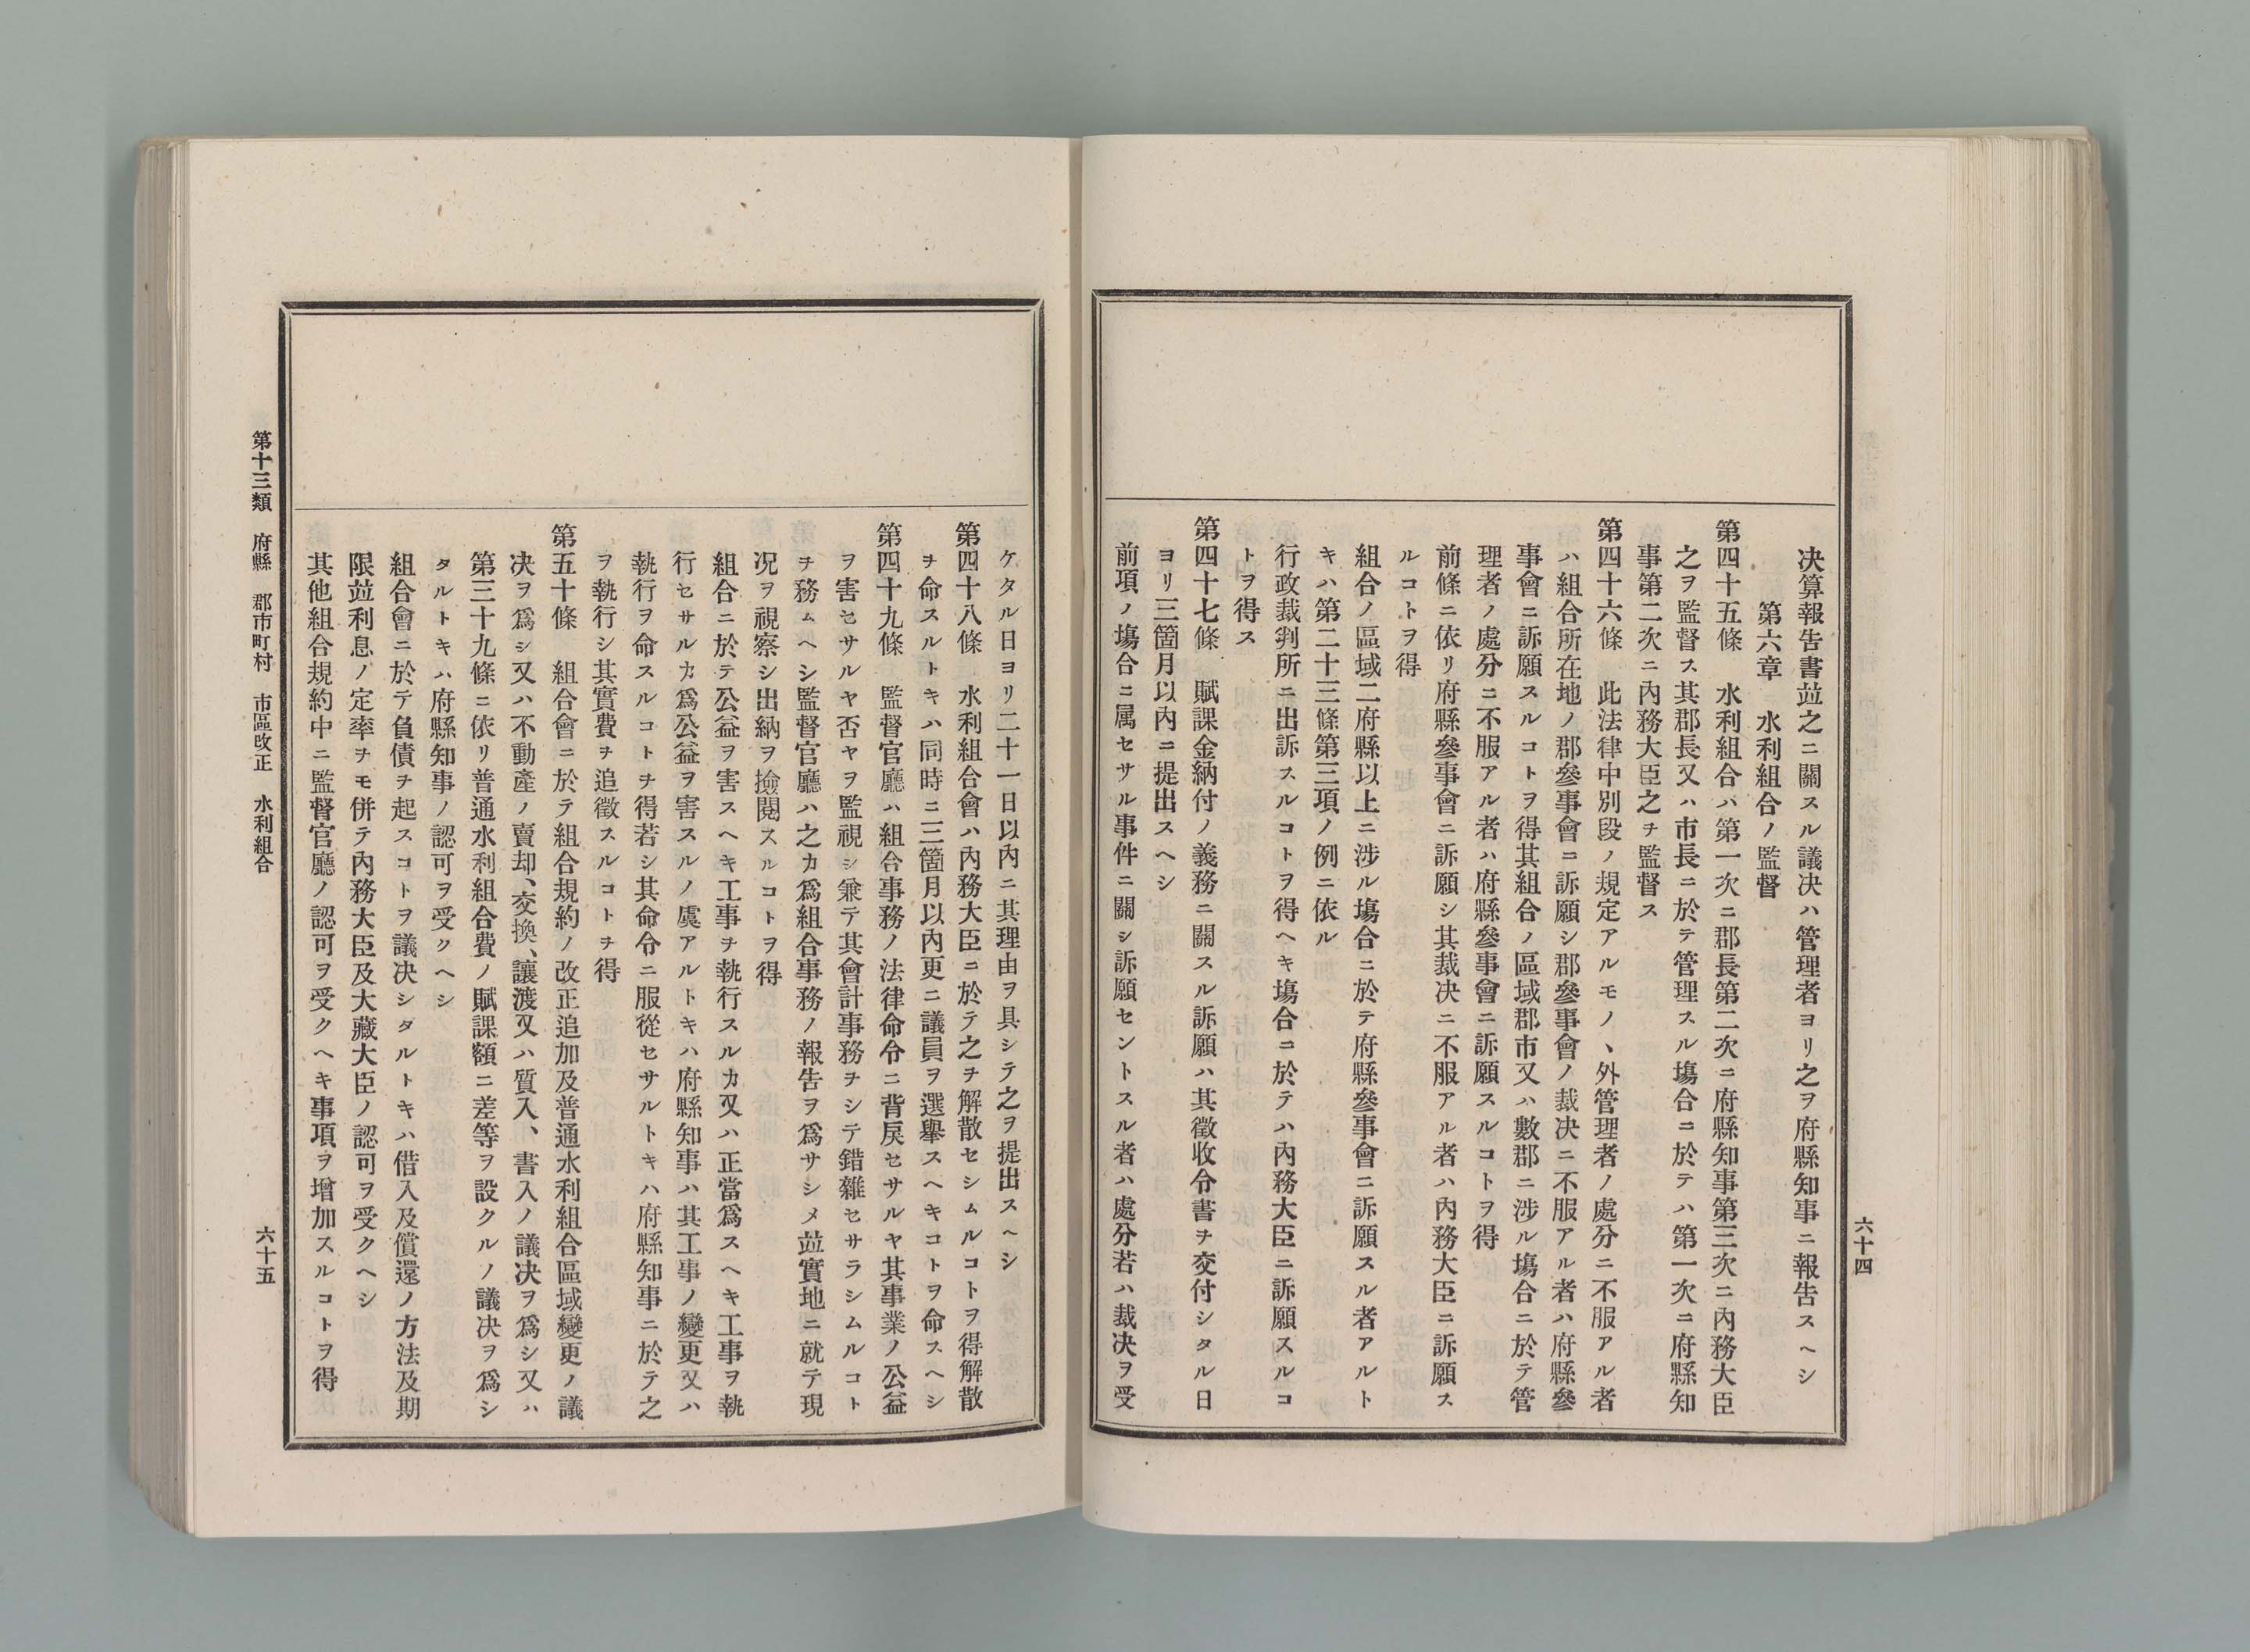 決算報告書竝之ニ關スル議决ハ管理者ヨリ之ヲ府縣知事ニ報告スヘシ
第六章　水利組合ノ監督
第四十五條　水利組合ハ第一次ニ郡長第二次ニ府縣知事第三次ニ內務大臣
之ヲ監督ス其郡長又ハ市長ニ於テ管理スル塲合ニ於テハ第一次ニ府縣知
事第二次ニ內務大臣之ヲ監督ス
第四十六條　此法律中別段ノ規定アルモノヽ外管理者ノ處分ニ不服アル者
ハ組合所在地ノ郡參事會ニ訴願シ郡參事會ノ裁决ニ不服アル者ハ府縣參
事會ニ訴願スルコトヲ得其組合ノ區域郡市又ハ數郡ニ涉ル塲合ニ於テ管
理者ノ處分ニ不服アル者ハ府縣參事會ニ訴願スルコトヲ得
前條ニ依リ府縣參事會ニ訴願シ其裁决ニ不服アル者ハ內務大臣ニ訴願ス
ルコトヲ得
組合ノ區域二府縣以上ニ涉ル塲合ニ於テ府縣參事會ニ訴願スル者アルト
キハ第二十三條第三項ノ例ニ依ル
行政裁判所ニ出訴スルコトヲ得ヘキ塲合ニ於テハ內務大臣ニ訴願スルコ
トヲ得ス
第四十七條　賦課金納付ノ義務ニ關スル訴願ハ其徵收令書ヲ交付シタル日
ヨリ三箇月以內ニ提出スヘシ
前項ノ塲合ニ属セサル事件ニ關シ訴願セントスル者ハ處分若ハ裁决ヲ受
六十四
ケタル日ヨリ二十一日以內ニ其理由ヲ具シテ之ヲ提出スヘシ
第四十八條　水利組合會ハ內務大臣ニ於テ之ヲ解散セシムルコトヲ得解散
ヲ命スルトキハ同時ニ三箇月以內更ニ議員ヲ選擧スヘキコトヲ命スヘシ
第四十九條　監督官廳ハ組合事務ノ法律命令ニ背戾セサルヤ其事業ノ公益
ヲ害セサルヤ否ヤヲ監視シ兼テ其會計事務ヲシテ錯雜セサラシムルコト
ヲ務ムヘシ監督官廳ハ之カ爲組合事務ノ報告ヲ爲サシメ竝實地ニ就テ現
况ヲ視察シ出納ヲ撿閱スルコトヲ得
組合ニ於テ公益ヲ害スヘキ工事ヲ執行スルカ又ハ正當爲スヘキ工事ヲ執
行セサルカ爲公益ヲ害スルノ虞アルトキハ府縣知事ハ其工事ノ變更又ハ
執行ヲ命スルコトヲ得若シ其命令ニ服從セサルトキハ府縣知事ニ於テ之
ヲ執行シ其實費ヲ追徵スルコトヲ得
第五十條　組合會ニ於テ組合規約ノ改正追加及普通水利組合區域變更ノ議
决ヲ爲シ又ハ不動產ノ賣却、交換、讓渡又ハ質入、書入ノ議决ヲ爲シ又ハ
第三十九條ニ依リ普通水利組合費ノ賦課額ニ差等ヲ設クルノ議决ヲ爲シ
タルトキハ府縣知事ノ認可ヲ受クヘシ
組合會ニ於テ負債ヲ起スコトヲ議决シタルトキハ借入及償還ノ方法及期
限竝利息ノ定率ヲモ併テ內務大臣及大藏大臣ノ認可ヲ受クヘシ
其他組合規約中ニ監督官廳ノ認可ヲ受クヘキ事項ヲ增加スルコトヲ得
第十三類　府縣　郡市町村　市區改正　水利組合
六十五